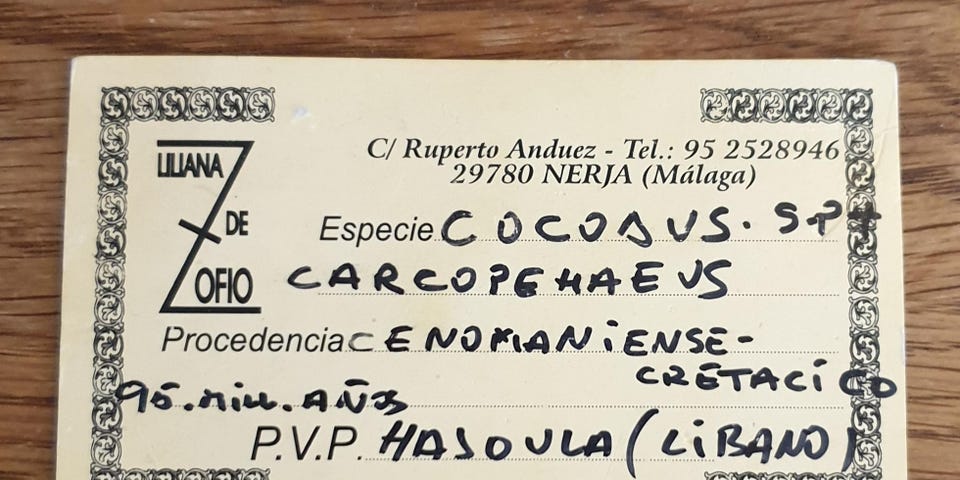 LILIANA
DE
OFIO
C/ Ruperto Anduez - Tel.: 95 2528946
29780 NERJA (Málaga)
Especie COCODUS. SP +
CARCOPEHAEUS
Procedencia CENOMANIENSE-
CRETACICO
95. MILL. AÑOS
P.V.P. HASOULA (LIBANO)